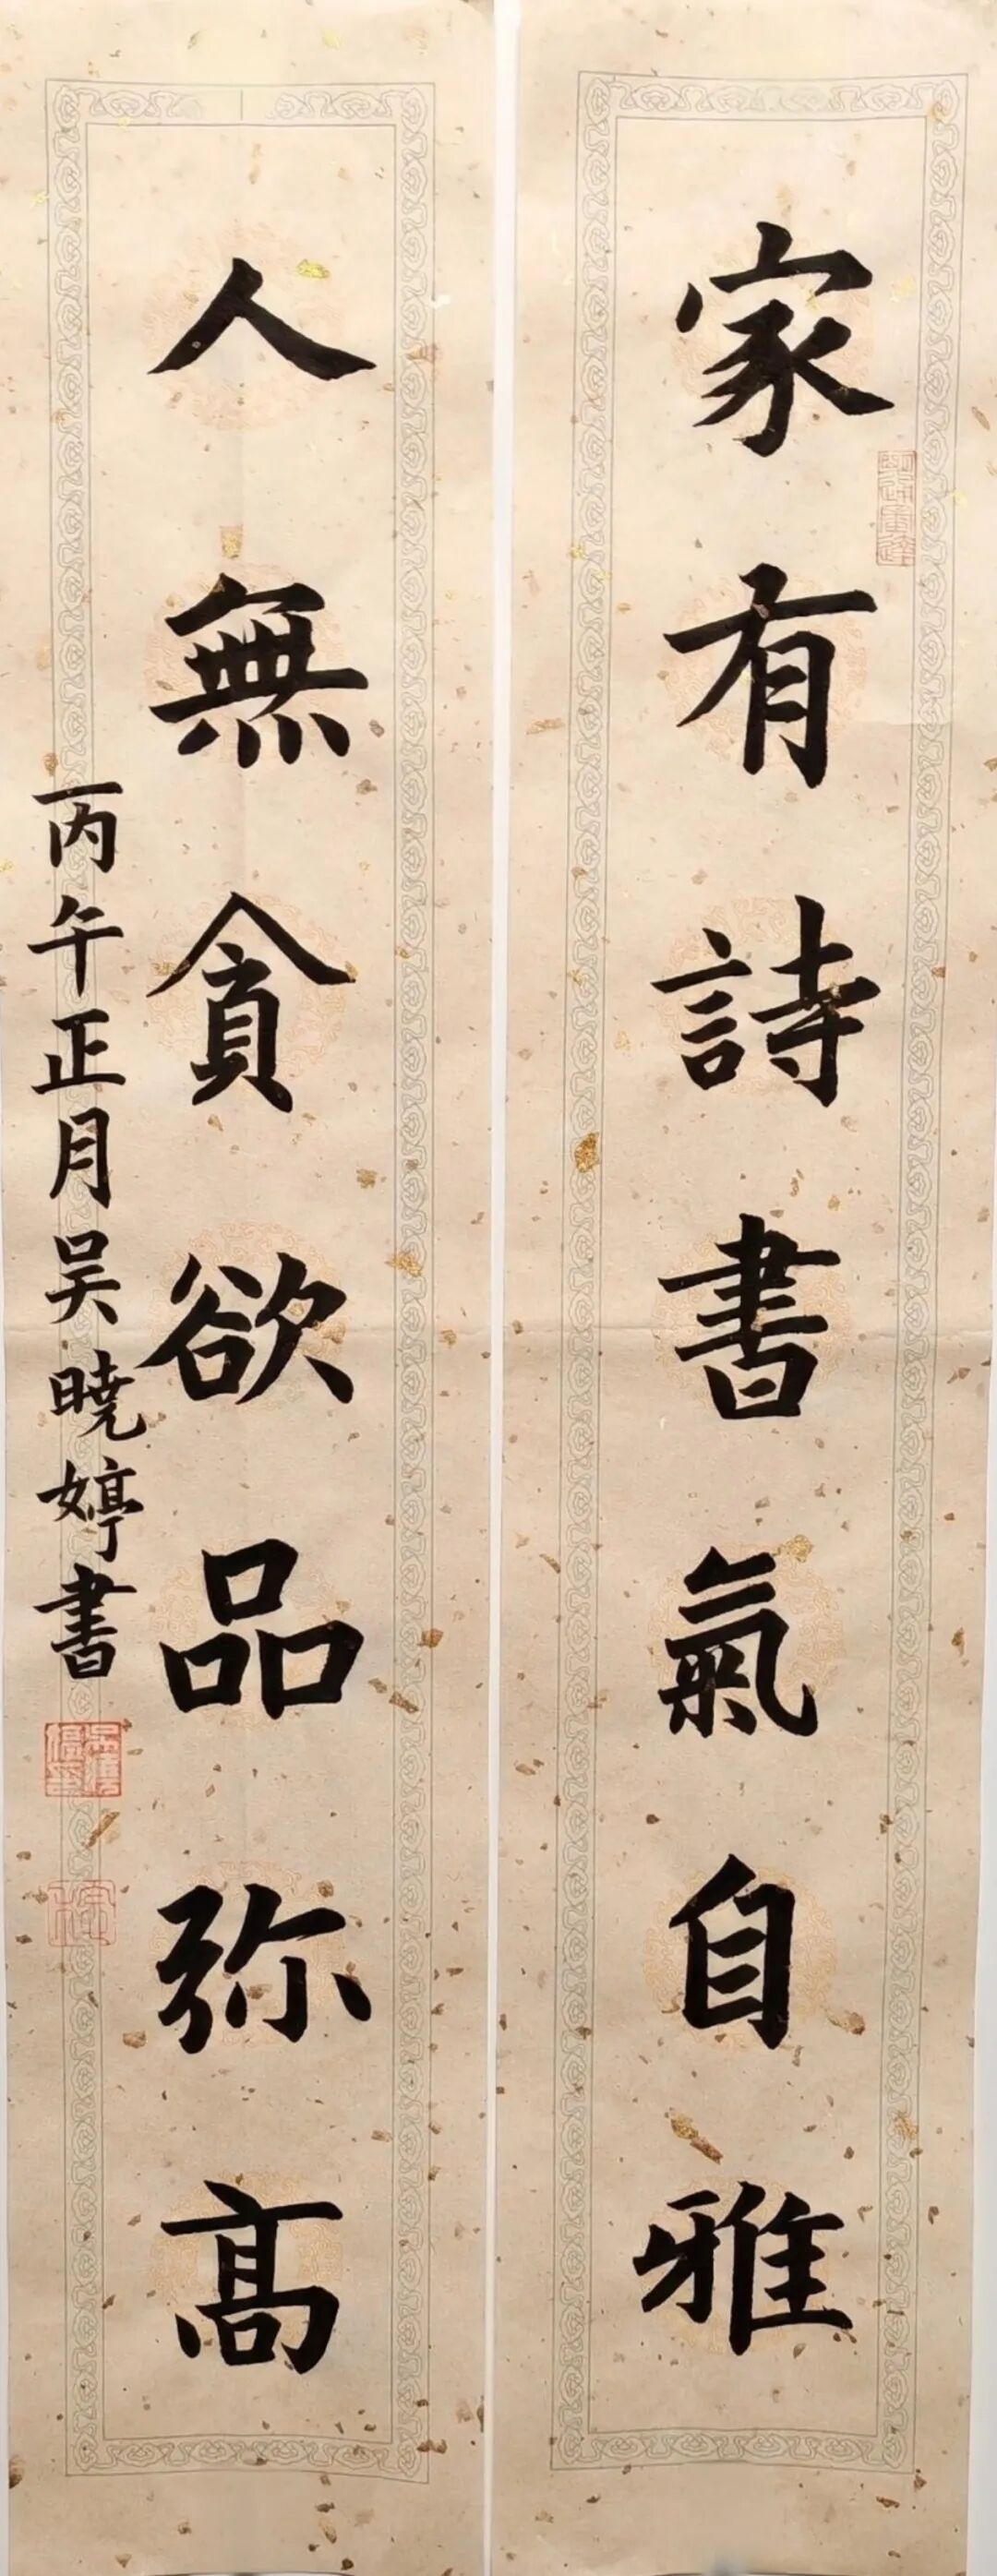 家有詩書氣自雅
人無貪欲品弥高
丙午正月吴曉婷書